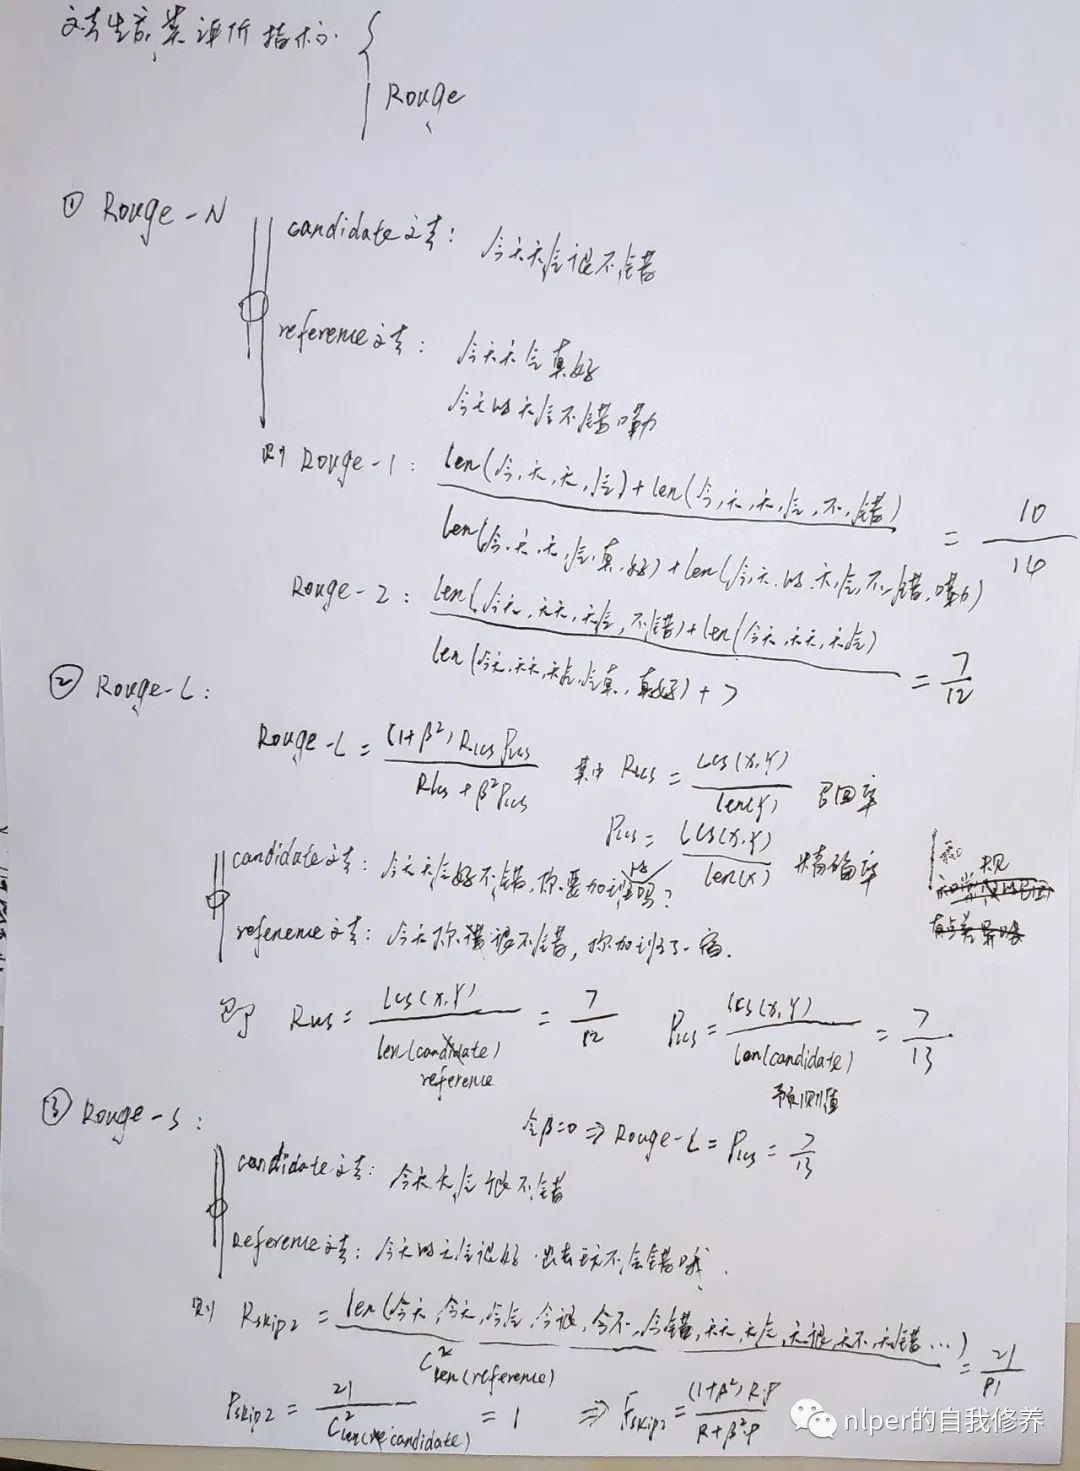 文本生成类评价指标. {
Rouge
① Rouge-N
candidate文本: 今天天气很不错
reference文本: 今天天气真好
今天的天气不错嘞
则 Rouge-1: len(今,天,天,气)+len(今,天,天,气,不,错)
len(今,天,天,气,真,好)+len(今,天,的,天,气,不,错,嘞) = 10/14
Rouge-2: len(今天,天天,天气,不错)+len(今天,天天,天气)
len(今天,天天,天气,气真,真好)+7 = 7/12
② Rouge-L:
Rouge-L = (1+β²)Rlcs Plcs / Rlcs+β²Plcs 其中 Rlcs = Lcs(X,Y)/len(Y) 召回率
Plcs = LCS(X,Y)/len(X) 精确率
candidate文本: 今天天气好不错,你要加班吗?
reference文本: 今天你很不错,你加
即 Rlcs = Lcs(X,Y)/len(candidate) = 7/12 Plcs = lcs(X,Y)/len(candidate) = 7/13
reference
预测值
③ Rouge-S:
令β=0 ⇒ Rouge-L = Plcs = 7/13
candidate文本: 今天天气很不错
Reference文本: 今天的天气很好,出去玩不会错哦.
则 Rskip2 = len(今天,今天,今气,今很,今不,今错,天天,天气,天很,天不,天错...) / C²len(reference) = 21/91
Pskip2 = 21/C²len(candidate) = 1 ⇒ Fskip2 = (1+β²)R·P / R+β²·P
nlper的自我修养